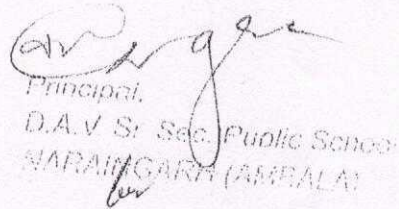 Principal,
D.A.V Sr. Sec. Public School
NARAINGARH (AMBALA)